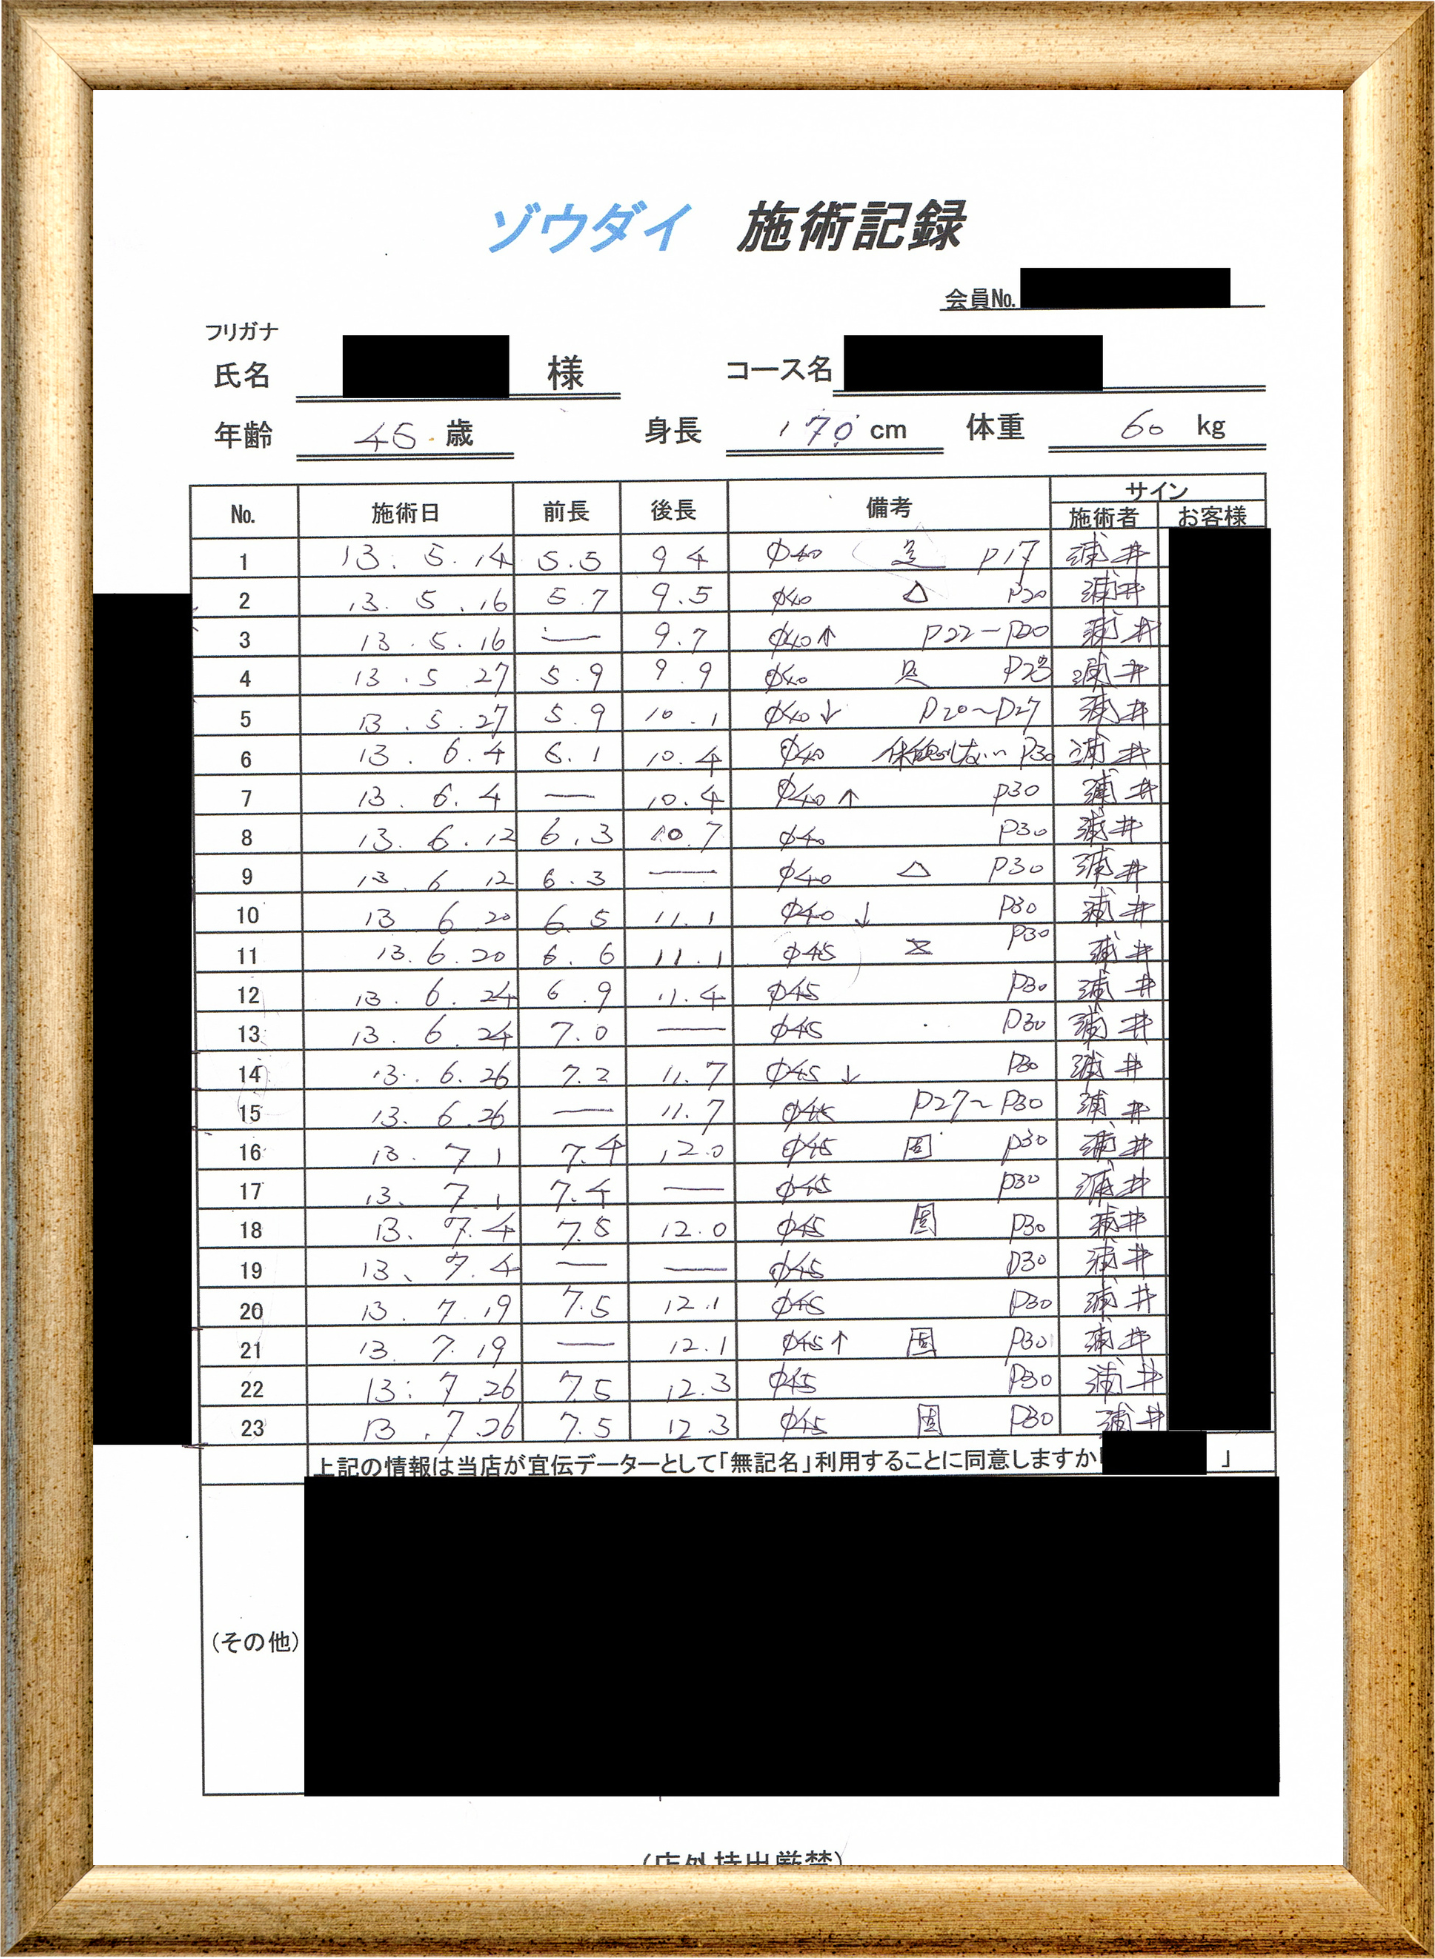 ゾウダイ 施術記録
会員No.
フリガナ
氏名 様 コース名
年齢 45 歳 身長 170 cm 体重 60 kg
No. 施術日 前長 後長 備考 サイン
施術者 お客様
1 13. 5. 14 5.5 9.4 φ40 P17 浦井
2 13. 5. 16 5.7 9.5 φ40 △ P20 浦井
3 13. 5. 16 — 9.7 φ40↑ P22〜P20 浦井
4 13. 5 27 5.9 9.9 φ40 P23 浦井
5 13. 5. 27 5.9 10.1 φ40↓ P20〜P27 浦井
6 13. 6. 4 6.1 10.4 φ40 P30 浦井
7 13. 6. 4 — 10.4 φ40↑ P30 浦井
8 13. 6. 12 6.3 10.7 φ40 P30 浦井
9 13. 6. 12 6.3 — φ40 △ P30 浦井
10 13 6. 20 6.5 11.1 φ40↓ P30 浦井
11 13. 6. 20 6.6 11.1 φ45 P30 浦井
12 13. 6. 24 6.9 11.4 φ45 P30 浦井
13 13. 6. 24 7.0 — φ45 P30 浦井
14 13. 6. 26 7.2 11.7 φ45↓ P30 浦井
15 13. 6. 26 — 11.7 φ45 P27〜P30 浦井
16 13. 7 1 7.4 12.0 φ45 固 P30 浦井
17 13. 7. 1 7.4 — φ45 P30 浦井
18 13. 7. 4 7.5 12.0 φ45 固 P30 浦井
19 13、7. 4 — — φ45 P30 浦井
20 13. 7. 19 7.5 12.1 φ45 P30 浦井
21 13. 7. 19 — 12.1 φ45↑ 固 P30 浦井
22 13. 7. 26 7.5 12.3 φ45 P30 浦井
23 13. 7. 26 7.5 12.3 φ45 固 P30 浦井
上記の情報は当店が宣伝データーとして「無記名」利用することに同意しますか「 」
(その他)
(店外持出厳禁)